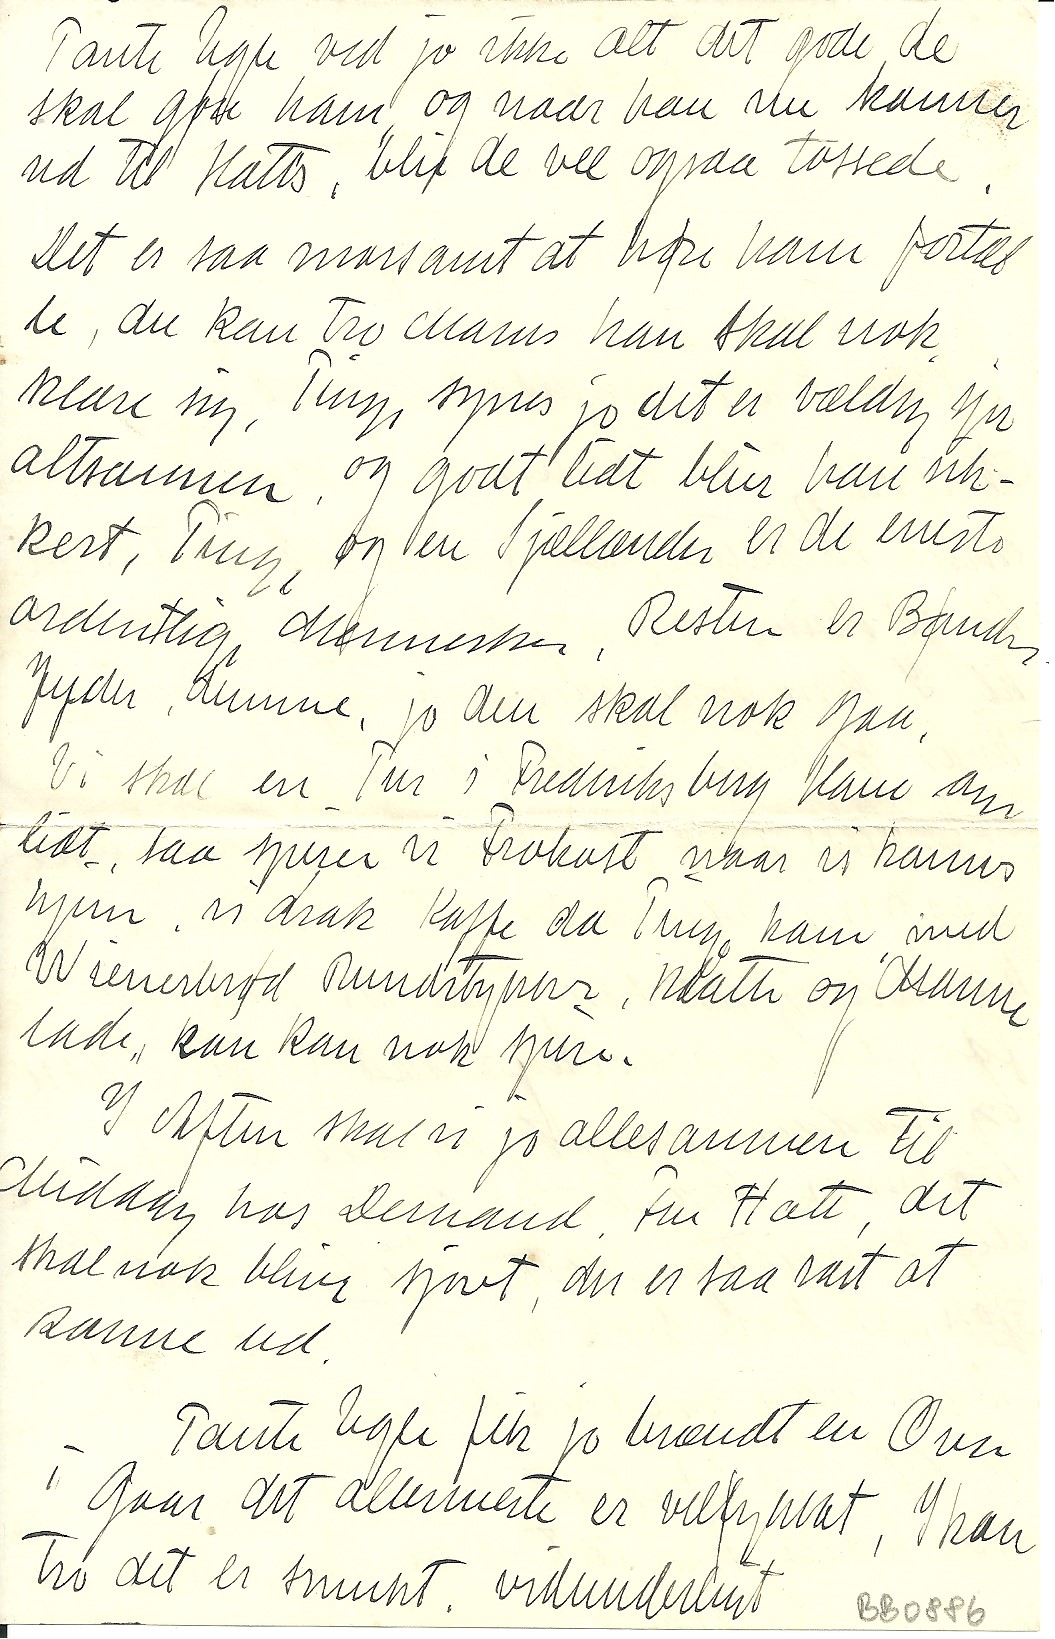 Tante Ugle ved jo ikke alt det gode de
skal gøre ham, og naar han nu kommer
ud til Hatts, blir de vel ogsaa tossede.
Det er saa morsomt at høre ham fortæl
le, du kan tro Mams han skal nok
klare sig, Tinge synes jo det er vældig sjov
altsammen, og godt lidt bliver han sik-
kert, Tinge og en Sjællænder er de eneste
ordentlige Mennesker, Resten er Bønder,
Jyder, dumme, jo den skal nok gaa,
Vi skal en Tur i Frederiksberg Have om
lidt, saa spiser vi Frokost naar vi kommer
hjem, vi drak Kaffe da Tinge kom med
Wienerbrød Rundstykker, og Marme
lade, kan kan nok spise.
I Aften skal vi jo allesammen til
Middag hos Dernand, Fru Hatt, det
skal nok blive sjovt, der er saa rart at
komme ud.
Tante Ugle fik jo brændt en Ovn
i Gaar det allermeste er vellykket, I kan
tro det er smukt. vidunderligt
BB0886